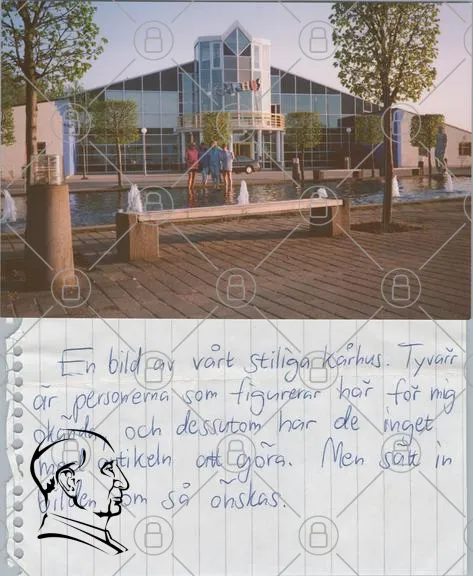 En bild av vårt stiliga kårhus. Tyvärr
är personerna som figurerar här för mig
okända och dessutom har de inget
med artikeln att göra. Men sätt in
bilden om så önskas.